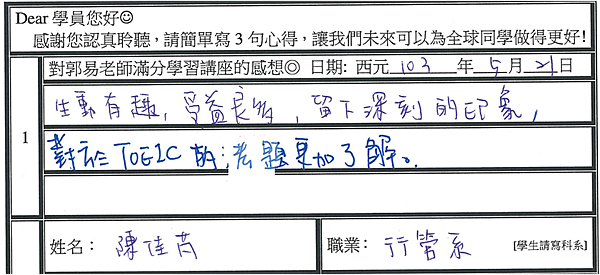 Dear 學員您好☺
感謝您認真聆聽，請簡單寫 3 句心得，讓我們未來可以為全球同學做得更好!
對郭易老師滿分學習講座的感想◎ 日期: 西元 103 年 5 月 21 日
1
生動有趣，受益良多，留下深刻的印象，
對於 TOEIC 的考題更加了解。
姓名： 陳佳芮
職業： 行管系 [學生請寫科系]